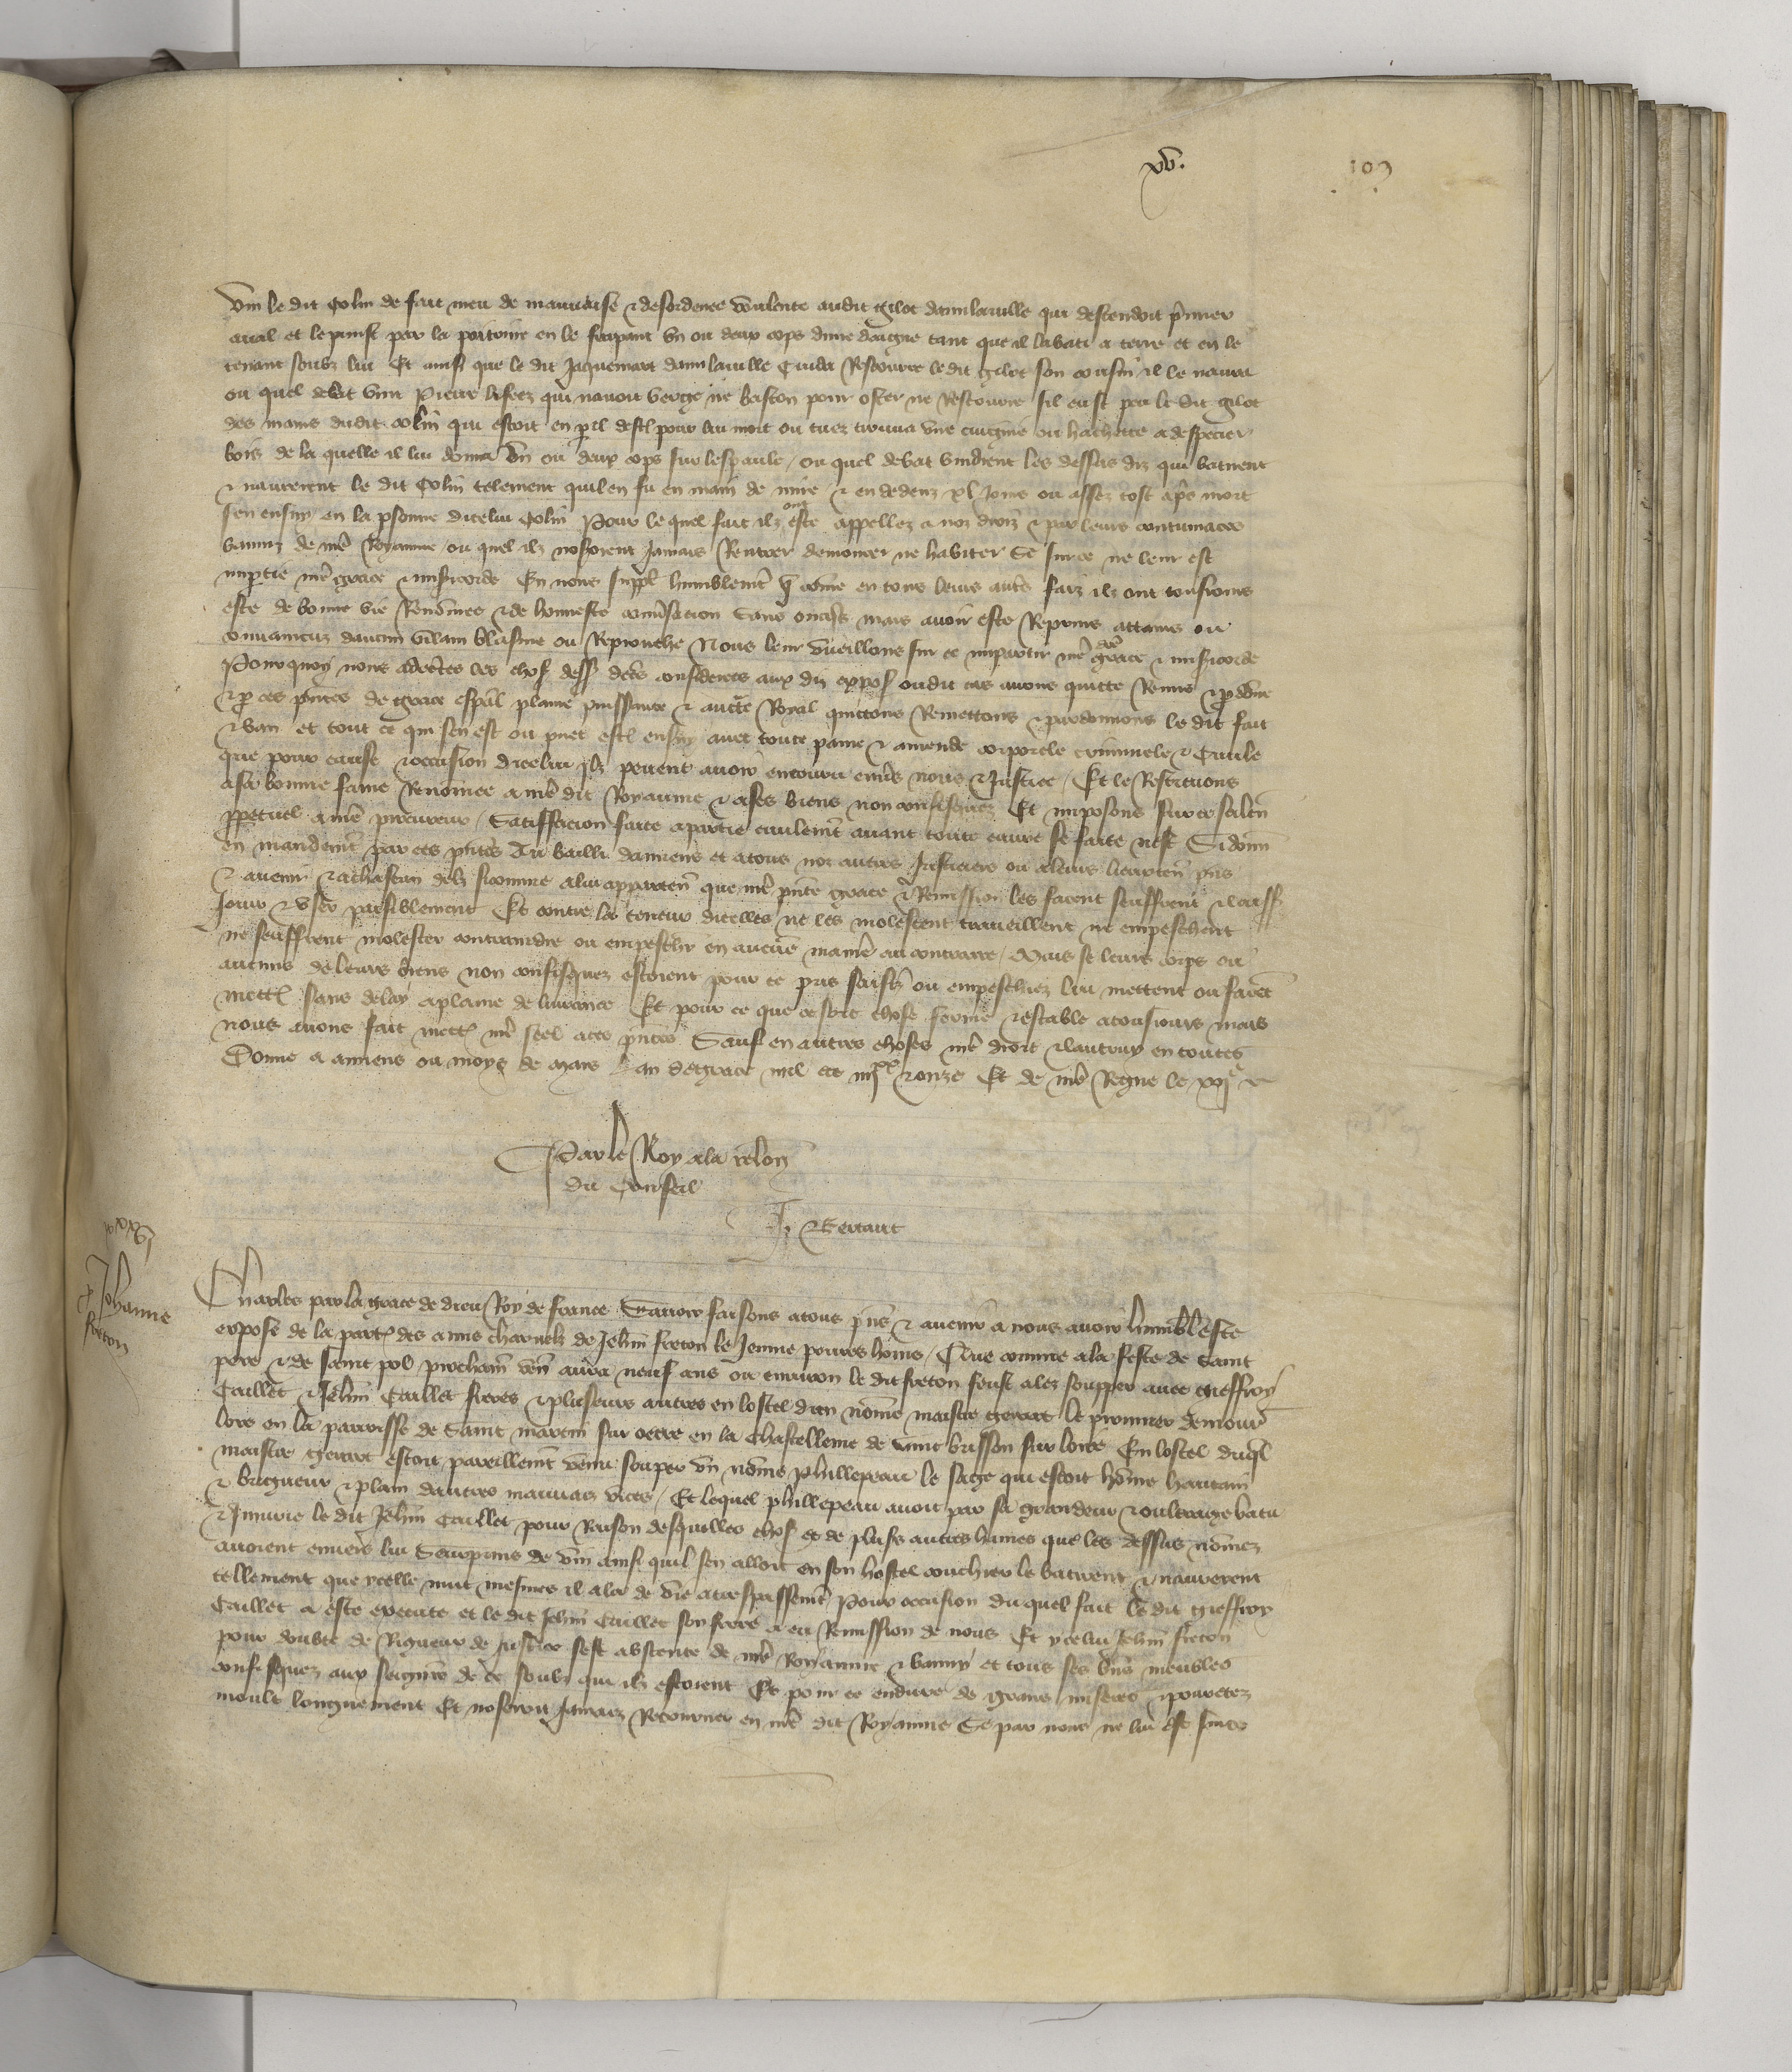 xv.
103
vin le dit Colin de fait meu de mauvaise & desordenee voulente audit Gilot damlaville qui descendoit prmer
aval et le prinst par la poitrine en le frapant un ou deux cops dune dague tant que il labati a terre et en le
tenant soubz lui Et ainsi que le dit Jaquemart damlaville cuida Rescourre le dit Gilot son cousin il le navra
ou quel debat vint Pierre qui navoit verge ne baston pour oster ne Rescourre sil eust peu le dit Gilot
des mains dudit Colin qui estoit en pil destre pour lui mort ou tuez trouva une cuignie ou hachete a despecier
bois de la quelle il lui donna un ou deux cops sur lespaule / ou quel debat vindrent les dessus diz qui batirent
& navrerent le dit Colin telement quil en fu en main de mire & en dedenz xl jours ou assez tost apres mort
sen ensuy en la psonne dicelui Colin Pour le quel fait ilz ont este appellez a noz droiz & par leurs contumaces
banniz de nre Royaume / ou quel ilz noseroient jamais Rentrer demourer ne habiter Se sur ce ne leur est
impartie nre grace & misericorde En nous suppl humblement que comme en tous leurs autres faiz ilz ont tousjours
este de bonne vie Renommee & de honneste conversacion Sans onques mais avoir este Reprins attains ou
convaincuz daucun vilain blasme ou Reprouche Nous leur vueillons sur ce impartir nre dce grace & misericorde
Pourquoy nous adcertes les chos dess dces considerees aux diz expos oudit cas avons quitte Remis & pdonne
& p ces pntes de grace espal plaine puissance & aucte Royal quittons Remettons & pardonnons le dit fait
& ban et tout ce qui sen est ou puet estre ensuy avec toute paine & amende corporele criminele & Civile
que pour cause & occasion dicelui ilz pevent avoir encouru envers nous & Justice / Et le Restituons
a sa bonne fame Renommee a nre dit Royaume & a ses biens non confisquez Et imposons sur ce silence
ppetuel a nre procureur / Satiffacion faite a partie civilement avant toute euvre se faite nest Si donn
en mandemt par ces pntes Au bailli damiens et a tous noz autres Justiciers ou a leurs lieuxten pns
& avenir & a chascun delz si comme a lui appartendra que nre pnte grace & Remission les facent seuffrent & laiss
Joir & user paisiblement Et contre la teneur dicelles ne les molestent traveillent ne empeschent
ne seuffrent molester contraindre ou empeschr en aucune maniere au contraire / Mais se leurs corps ou
aucuns de leurs biens non confisquez estoient pour ce pris saisiz ou empeschiez lui mettent ou facent
mettre sans delay a plaine delivrance Et pour ce que ce soit chose ferme & estable a tousjours mais
nous avons fait mettre nre seel a ces pntes Sauf en autres choses nre droit & lautruy en toutes
Donne a amiens ou moys de Mars Lan de grace mil ccc iiijxx & onze Et de nre Regne le xije
Par le Roy a la relon
du Conseil
Jh Bertaut
pro Johanne
freton
Charles par la grace de dieu Roy de france Savoir faisons a tous pns & avenir a nous avoir humblt este
expose de la partie des amis charnelz de Jehan freton le Jeune povres homs / Que comme a la feste de Saint
pere & de saint pol prochain ven aura neuf ans ou environ le dit freton feust alez soupper avec Gieffroy
Caillet & Jehan Caillet freres & plusieurs autres en lostel dun nomme maistre Gerart le premier demour
lors en la parroisse de Saint martin sur ocre en la Chastellenie de saint brisson sur loire En lostel duql
maistre Gerart estoit pareillemt venu souper un nomme Phillepeau le sage qui estoit homme hautain
& brigueur & plain dautres mauvaiz vices / Et lequel phillepeau avoit par sa grandeur & oultrage batu
& Injurie le dit Jehan Caillet pour Raison desquelles chos et de pluss autres haines que les dessus nommez
avoient envers lui Seurprins de vin ainsi quil sen alloit en son hostel couchier le batirent & navrerent
tellement que ycelle nuit mesmes il ala de vie a trespassemt Pour occasion du quel fait le dit Gieffroy
Caillet a este execute et le dit Jehan Caillet son frere a eu Remission de nous Et ycelui Jehan freton
pour doubte de Rigueur de justice sest absente de nre Royaume & banny et tous ses bns meubles
confisquez aux seigneurs de ce soubz qui ilz estoient Et pour ce endure de grans miseres & povretez
moult longuement Et noseroit jamaiz Retourner en nre dit Royaume Se par nous ne lui est sur ce